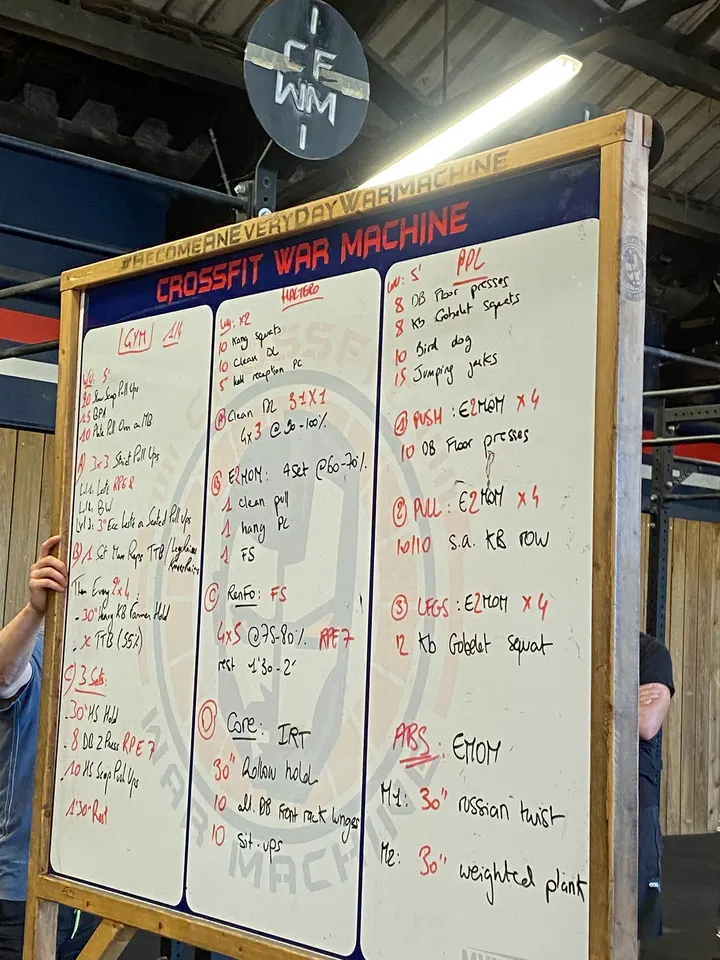 I
CF
WM
I
#BECOMEANEVERYDAYWARMACHINE
CROSSFIT WAR MACHINE
GYM 1/4
WU: 5'
Scap Pull Ups
15 BPA
10 Plate Pull Over on MB
A) 3x3 Strict Pull Ups
Lvl1: Lats RPE 8
Lvl2: BW
Lvl3: 3" Ecc Lats or Seated Pull Ups
B) 1 Set Max Reps TTB / Leg Raises
Knee Raises
Then Every 2' x4:
- 30" Heavy KB Farmer Hold
- x TTB (55%)
C) 3 Sets:
- 30" HS Hold
- 8 DB Z Press RPE 7
- 10 HS Scap Pull Ups
1'30" Rest
HALTERO
WU: x2
10 Kang squats
10 Clean DL
5 reception PC
A Clean DL 31X1
4x3 @90-100%
B E2MOM: 4 set @60-70%.
1 clean pull
1 hang PC
1 FS
C Renfo: FS
4x5 @75-80% RPE 7
rest 1'30-2'
D Core: IRT
30" Hollow hold
10 alt. DB Front rack lunges
10 sit-ups
PPL
WU: 5'
8 DB Floor presses
8 Kb Gobelet Squats
10 Bird dog
15 Jumping jacks
1 PUSH: E2MOM x4
10 DB Floor presses
2 PULL: E2MOM x4
10/10 s.a. KB row
3 LEGS: E2MOM x4
12 Kb Gobelet squat
ABS: EMOM
M1: 30" russian twist
M2: 30" weighted plank
WAR MACHINE